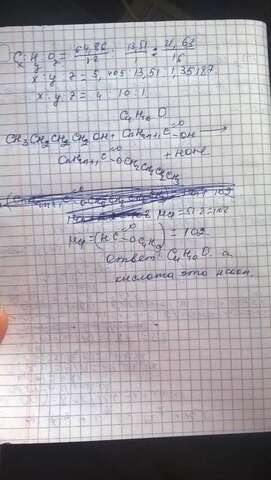 CxHyOz = 64,86/12 : 13,51/1 : 21,63/16
x : y : z = 5,405 : 13,51 : 1,35187
x : y : z = 4 : 10 : 1
C4H10O
CH3CH2CH2CH2OH + CnH2n+1C=O-OH →
CnH2n+1C=O-OCH2CH2CH2CH3 + HOH
Mr = 51·2 = 102
Mr = (HC=O-OC4H9) = 102
Ответ: C4H10O. а
кислота это